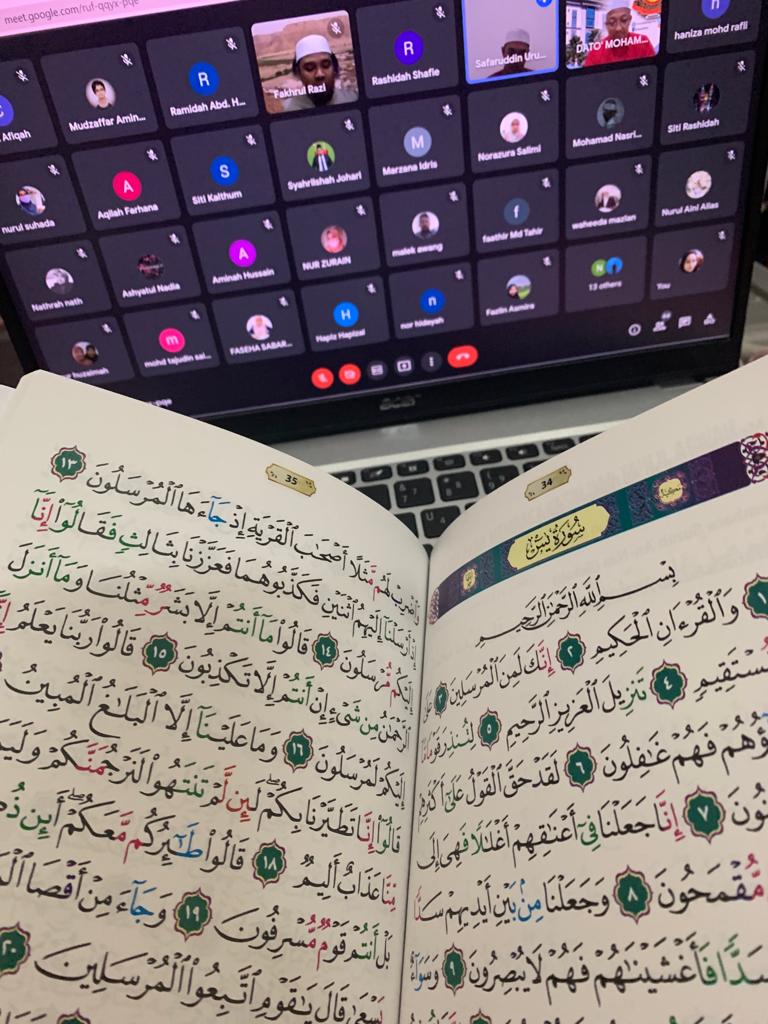 meet.google.com/ruf-qqyx-pqe
Afiqah
Mudzaffar Amin...
Ramidah Abd. H...
Fakhrul Razi
R
Rashidah Shafie
Safaruddin Uru...
DATO' MOHAM...
haniza mohd rafli
nurul suhada
A
Aqilah Farhana
S
Siti Kalthum
Syahrilshah Johari
M
Marzana Idris
Norazura Salimi
Mohamad Nasri...
Siti Rashidah
Nathrah nath
Ashyatul Nadia
A
Aminah Hussain
NUR ZURAIN
malek awang
f
faathir Md Tahir
waheeda mazlan
Nurul Aini Alias
huzaimah
m
mohd tajudin sai...
FASEHA SABAR...
H
Hapiz Hapizal
n
nor hidayah
Fazlin Asmira
N
13 others
You
34
سُورَةُ يسٓ
بِسْمِ ٱللَّهِ ٱلرَّحْمَٰنِ ٱلرَّحِيمِ
١ وَٱلْقُرْءَانِ ٱلْحَكِيمِ ٢ إِنَّكَ لَمِنَ ٱلْمُرْسَلِينَ ٣ عَلَىٰ
مُّسْتَقِيمٍ ٤ تَنزِيلَ ٱلْعَزِيزِ ٱلرَّحِيمِ ٥ لِتُنذِرَ قَوْمًا مَّآ
فَهُمْ غَٰفِلُونَ ٦ لَقَدْ حَقَّ ٱلْقَوْلُ عَلَىٰٓ أَكْثَرِهِمْ
٧ إِنَّا جَعَلْنَا فِىٓ أَعْنَٰقِهِمْ أَغْلَٰلًا فَهِىَ إِلَى
مُّقْمَحُونَ ٨ وَجَعَلْنَا مِنۢ بَيْنِ أَيْدِيهِمْ سَدًّا
سَدًّا فَأَغْشَيْنَٰهُمْ فَهُمْ لَا يُبْصِرُونَ ٩ وَسَوَآءٌ
35
وَٱضْرِبْ لَهُم مَّثَلًا أَصْحَٰبَ ٱلْقَرْيَةِ إِذْ جَآءَهَا ٱلْمُرْسَلُونَ ١٣
أَرْسَلْنَآ إِلَيْهِمُ ٱثْنَيْنِ فَكَذَّبُوهُمَا فَعَزَّزْنَا بِثَالِثٍ فَقَالُوٓا۟ إِنَّآ
إِلَيْكُم مُّرْسَلُونَ ١٤ قَالُوا۟ مَآ أَنتُمْ إِلَّا بَشَرٌ مِّثْلُنَا وَمَآ أَنزَلَ
ٱلرَّحْمَٰنُ مِن شَىْءٍ إِنْ أَنتُمْ إِلَّا تَكْذِبُونَ ١٥ قَالُوا۟ رَبُّنَا يَعْلَمُ
إِلَيْكُمْ لَمُرْسَلُونَ ١٦ وَمَا عَلَيْنَآ إِلَّا ٱلْبَلَٰغُ ٱلْمُبِينُ
قَالُوٓا۟ إِنَّا تَطَيَّرْنَا بِكُمْ لَئِن لَّمْ تَنتَهُوا۟ لَنَرْجُمَنَّكُمْ
مِّنَّا عَذَابٌ أَلِيمٌ ١٨ قَالُوا۟ طَٰٓئِرُكُم مَّعَكُمْ أَئِن
بَلْ أَنتُمْ قَوْمٌ مُّسْرِفُونَ ١٩ وَجَآءَ مِنْ أَقْصَا
يَسْعَىٰ قَالَ يَٰقَوْمِ ٱتَّبِعُوا۟ ٱلْمُرْسَلِينَ ٢٠